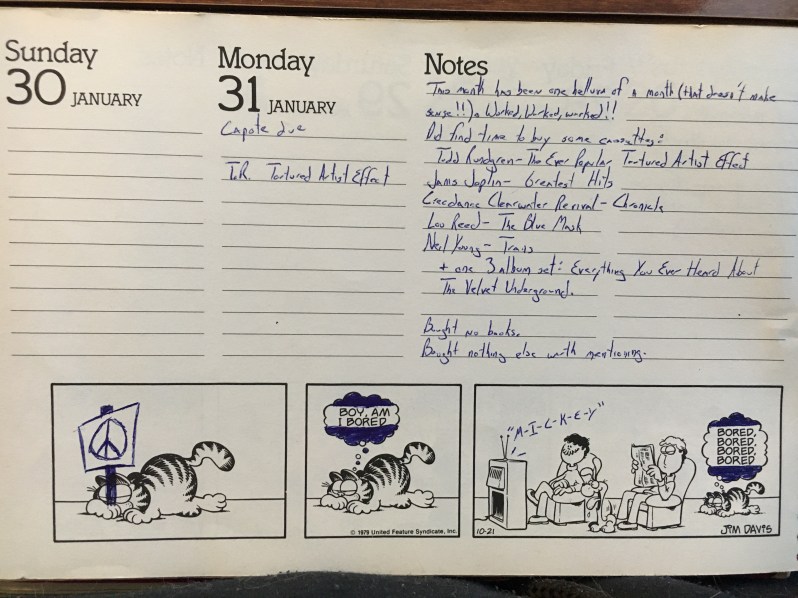 Sunday
30 JANUARY
Monday
31 JANUARY
Capote due
T.R. Tortured Artist Effect
Notes
This month has been one helluva of a month (that doesn't make
sense!!). Worked, Worked, worked!!
Did find time to buy some cassettes:
Todd Rundgren- The Ever Popular Tortured Artist Effect
Janis Joplin- Greatest Hits
Creedance Clearwater Revival- Chronicle
Lou Reed- The Blue Mask
Neil Young- Trans
+ one 3 album set: Everything You Ever Heard About
The Velvet Underground.
Bought no books.
Bought nothing else worth mentioning.
BOY, AM
I BORED
© 1979 United Feature Syndicate, Inc.
"M-I-C-K-E-Y"
10-21
BORED,
BORED,
BORED,
BORED
JIM DAVIS